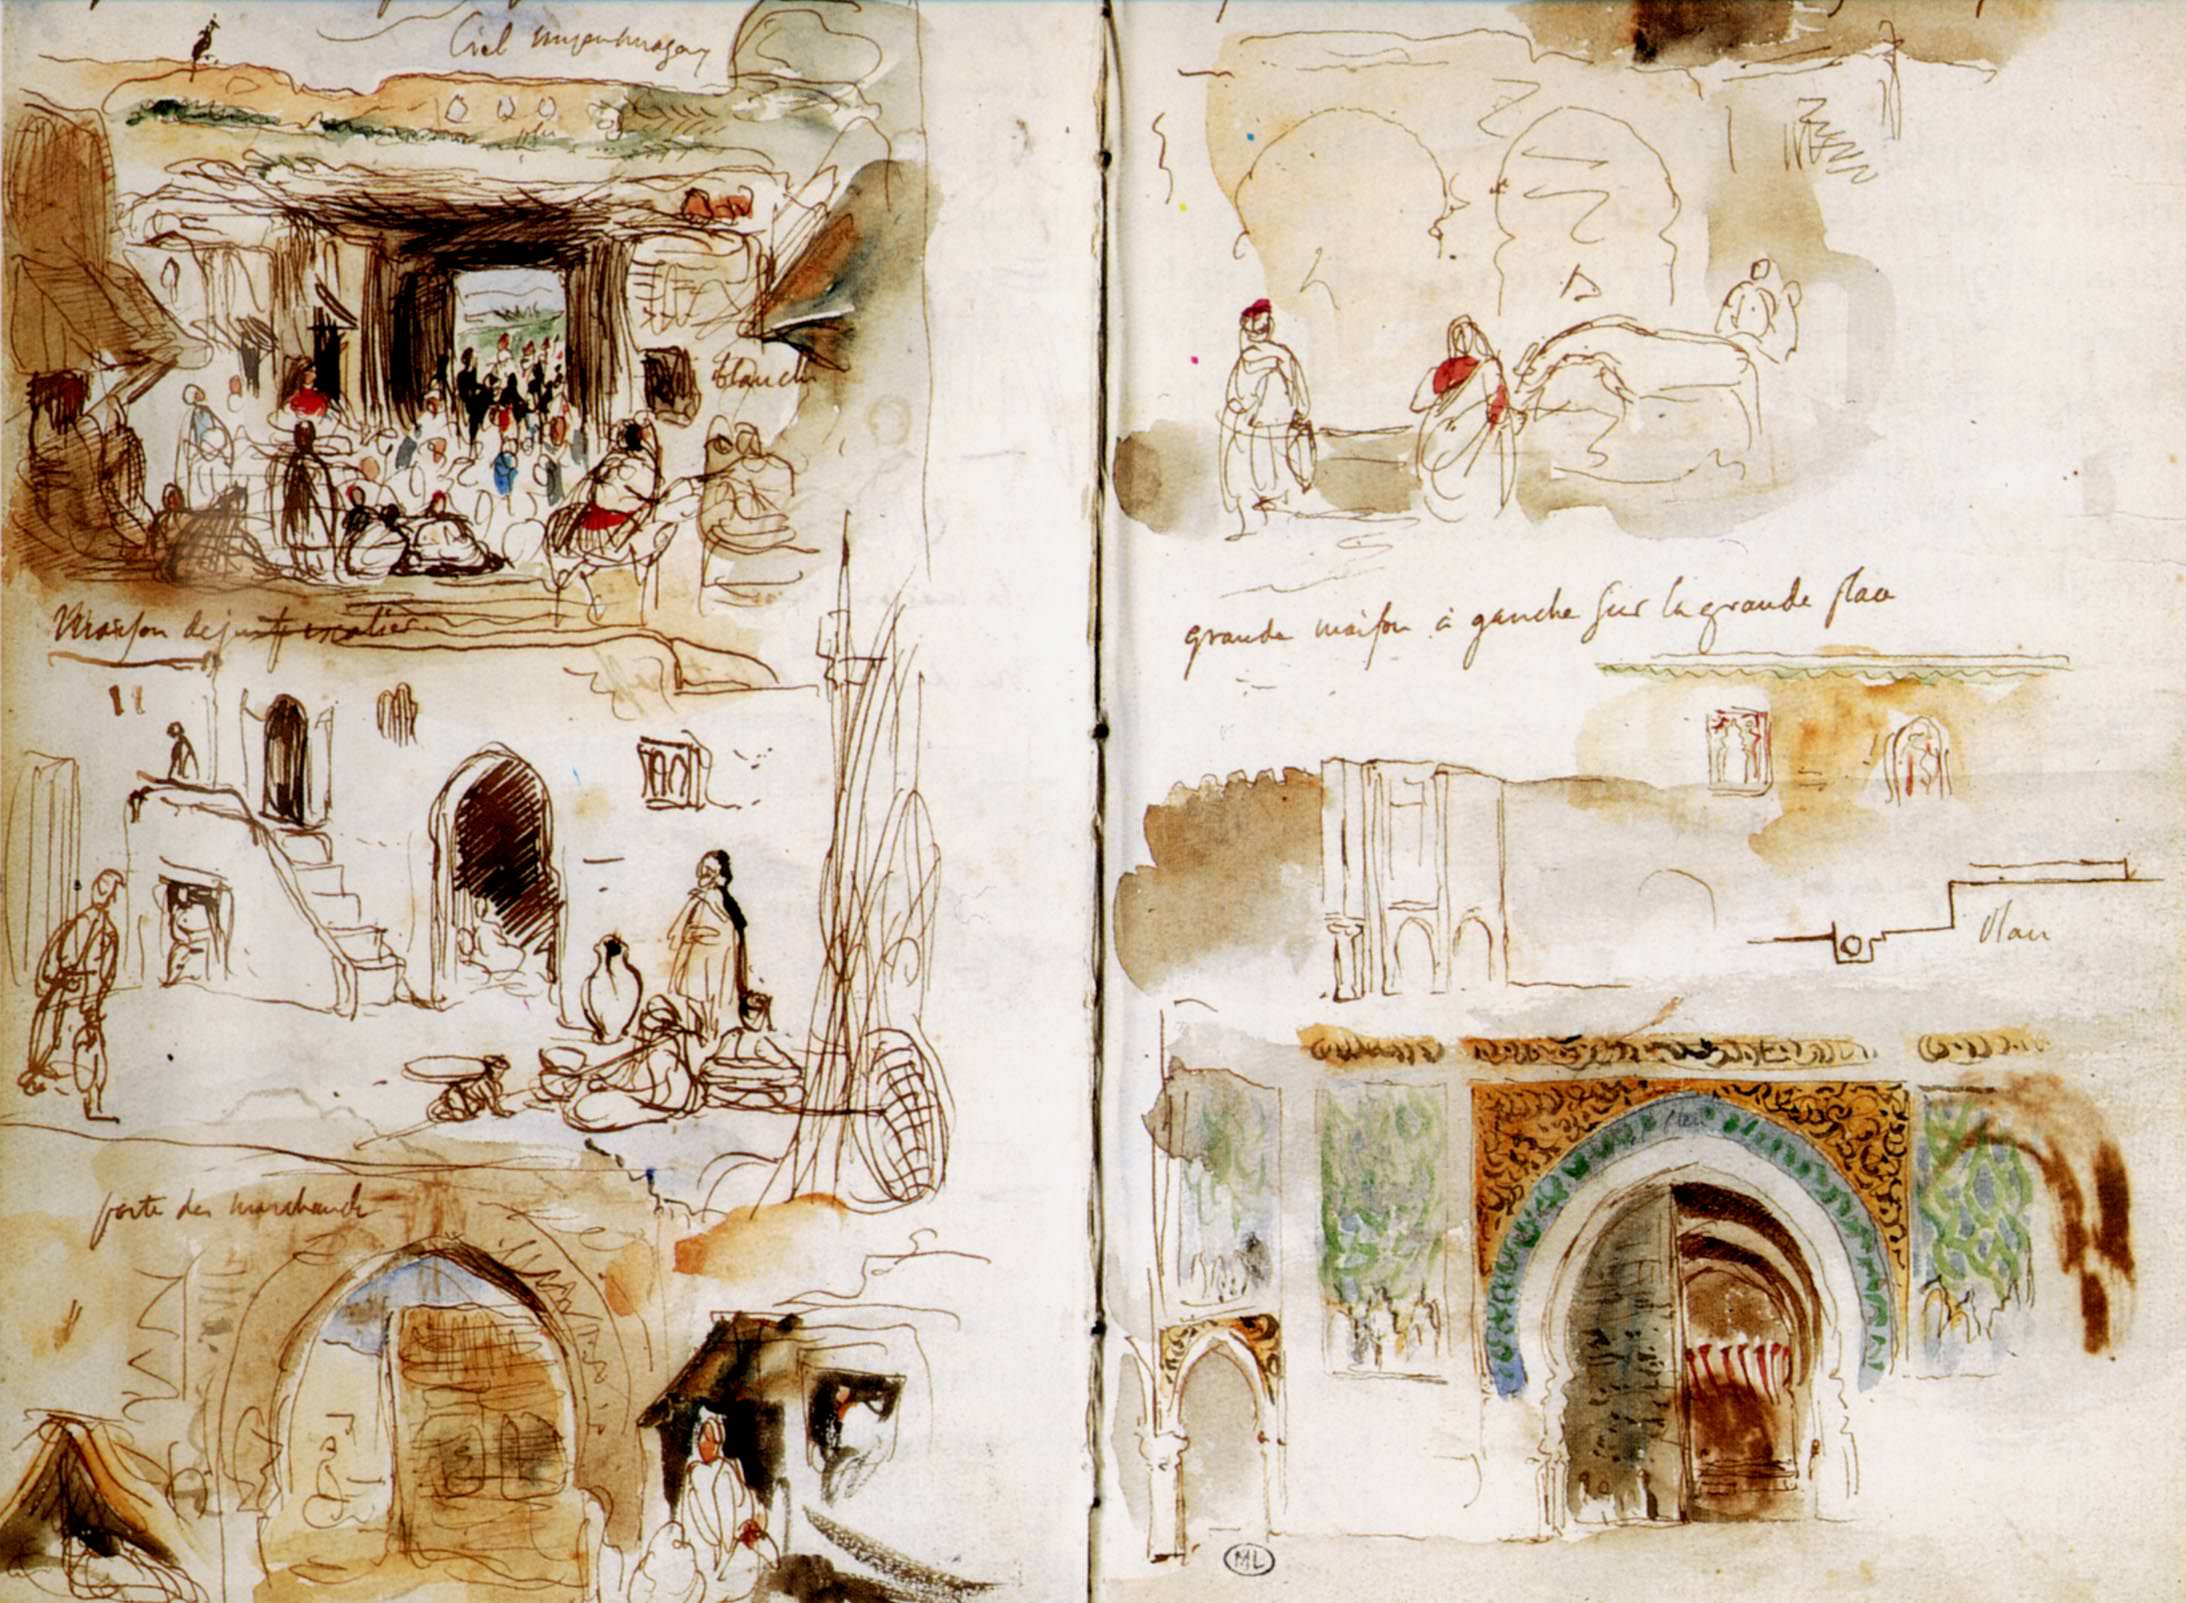 Ciel
bleu
blanche
Maison de just escalier
porte des marchands
grande maison à gauche sur la grande place
Plan
bleu
ML